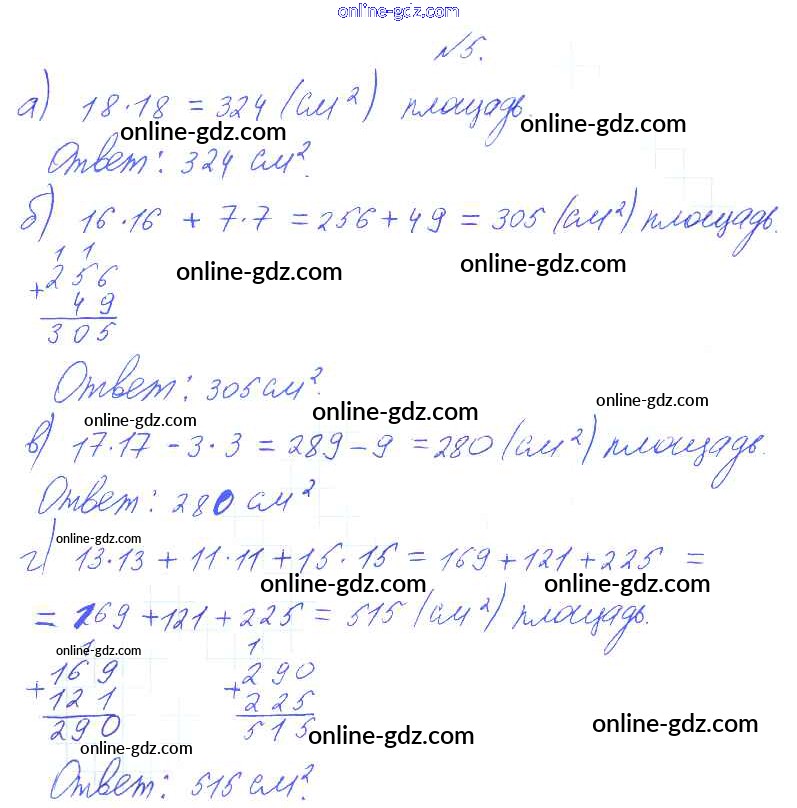 online-gdz.com
№5.
а) 18·18 = 324 (см²) площадь.
online-gdz.com online-gdz.com
Ответ: 324 см².
б) 16·16 + 7·7 = 256 + 49 = 305 (см²) площадь.
online-gdz.com online-gdz.com
1 1
+ 256
49
305
Ответ: 305 см².
online-gdz.com online-gdz.com online-gdz.com
в) 17·17 - 3·3 = 289 - 9 = 280 (см²) площадь.
Ответ: 280 см²
online-gdz.com
г) 13·13 + 11·11 + 15·15 = 169 + 121 + 225 =
online-gdz.com online-gdz.com
= 169 + 121 + 225 = 515 (см²) площадь.
online-gdz.com
1 1
+ 169 + 290
121 225
290 515
online-gdz.com online-gdz.com online-gdz.com
Ответ: 515 см².